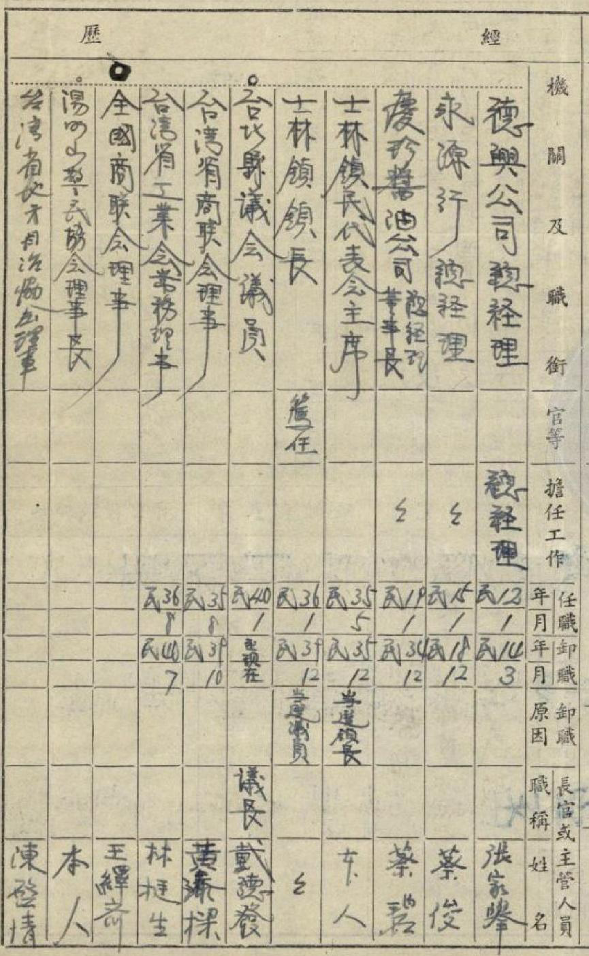 經歷
機關及職銜
官等
擔任工作
任職年月
卸職年月
卸職原因
長官或主管人員
職稱
姓名
德興公司總經理
總經理
民12 1
民14 3
張家舉
永源行總經理
〻
民15 1
民18 12
蔡俊
慶珍醬油公司總經理董事長
〻
民19 1
民34 12
蔡
士林鎮民代表会主席
民35 5
民35 12
当選鎮長
本人
士林鎮鎮長
薦任
民36 1
民39 12
当選議員
〻
台北縣議会議員
民40 1
現在
議長
戴德發
台湾省商联会理事
民35 8
民39 10
黃樑
台湾省工業会常務理事
民36 8
民40 7
林挺生
全國商联会理事
王繹齋
陽明山軍民協会理事長
本人
台湾省地方自治協会理事
陳啓清